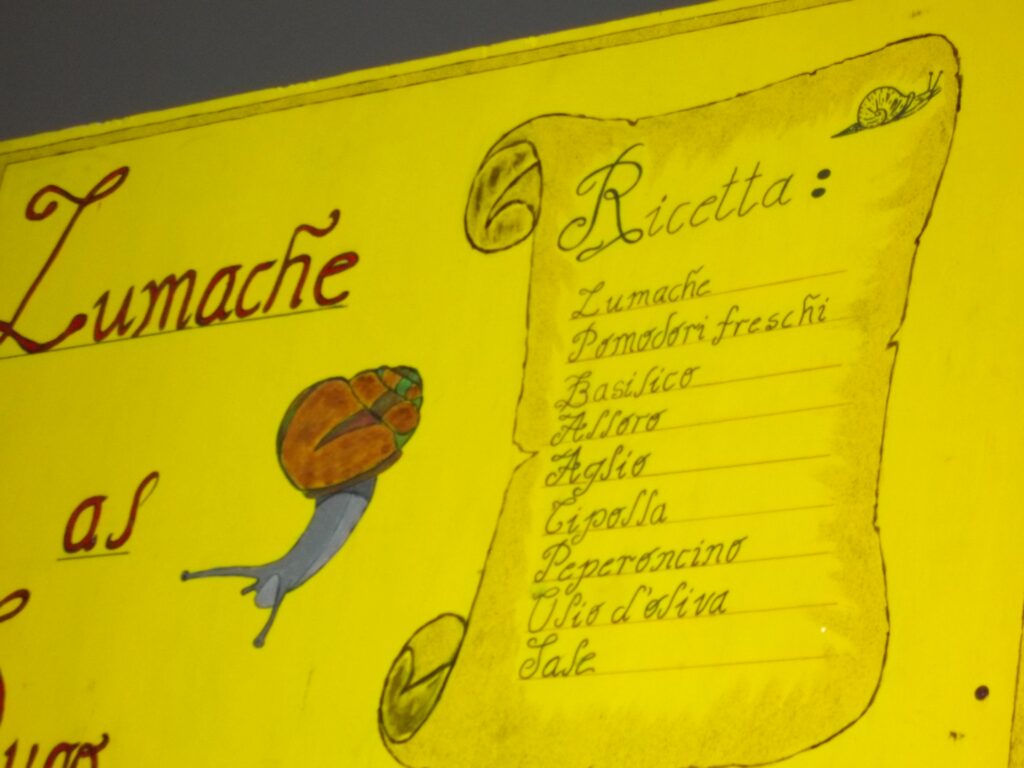 Lumache
al
Sugo
Ricetta:
Lumache
Pomodori freschi
Basilico
Alloro
Aglio
Cipolla
Peperoncino
Olio d'oliva
Sale